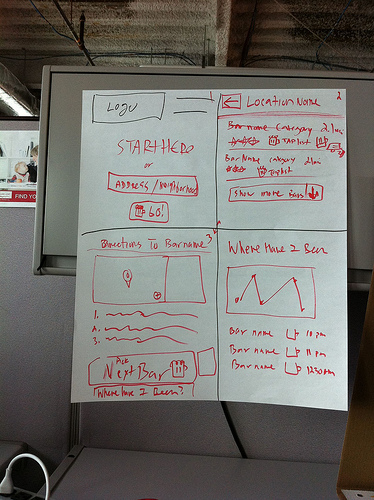 Logo
1
START HERO
or
ADDRESS / Neighborhood
GO!
2
Location Name
Bar name Category 2.1mi
TAP list
Bar Name category 2.1mi
Taplist
Show more Bars
Directions To Barname
3
1.
2.
3.
Pick
Next Bar
Where Have I Been?
Where Have I Been
Bar name 10 pm
Bar name 11 pm
Bar name 12:30 am
FIND YO